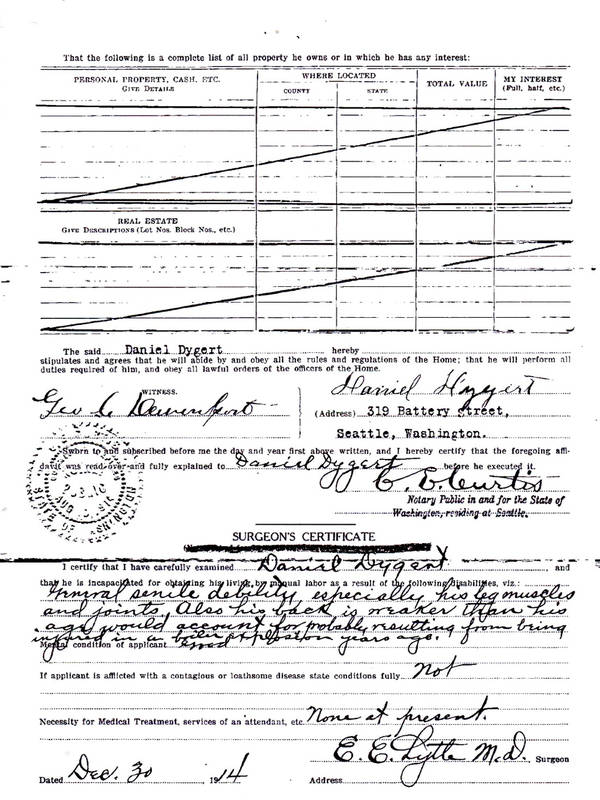 That the following is a complete list of all property he owns or in which he has any interest:
PERSONAL PROPERTY, CASH, ETC.
GIVE DETAILS
WHERE LOCATED
COUNTY
STATE
TOTAL VALUE
MY INTEREST
(Full, half, etc.)
REAL ESTATE
GIVE DESCRIPTIONS (Lot Nos. Block Nos., etc.)
The said Daniel Dygert hereby
stipulates and agrees that he will abide by and obey all the rules and regulations of the Home; that he will perform all
duties required of him, and obey all lawful orders of the officers of the Home.
WITNESS.
Daniel Dygert
Geo C Davenport
(Address) 319 Battery street,
Seattle, Washington.
Sworn to and subscribed before me the day and year first above written, and I hereby certify that the foregoing affi-
davit was read over and fully explained to Daniel Dygert before he executed it.
C. E. Curtis
Notary Public in and for the State of
Washington, residing at Seattle.
SURGEON'S CERTIFICATE
I certify that I have carefully examined Daniel Dygert, and
that he is incapacitated for obtaining his living by manual labor as a result of the following disabilities, viz.:
General senile debility, especially his leg muscles
and joints, Also his back is weaker than his
age would account for probably resulting from being
injured in a boiler explosion years ago.
Mental condition of applicant good
If applicant is afflicted with a contagious or loathsome disease state conditions fully Not
Necessity for Medical Treatment, services of an attendant, etc. None at present.
E. E. Lytle M.D. Surgeon
Dated Dec. 30 1914 Address